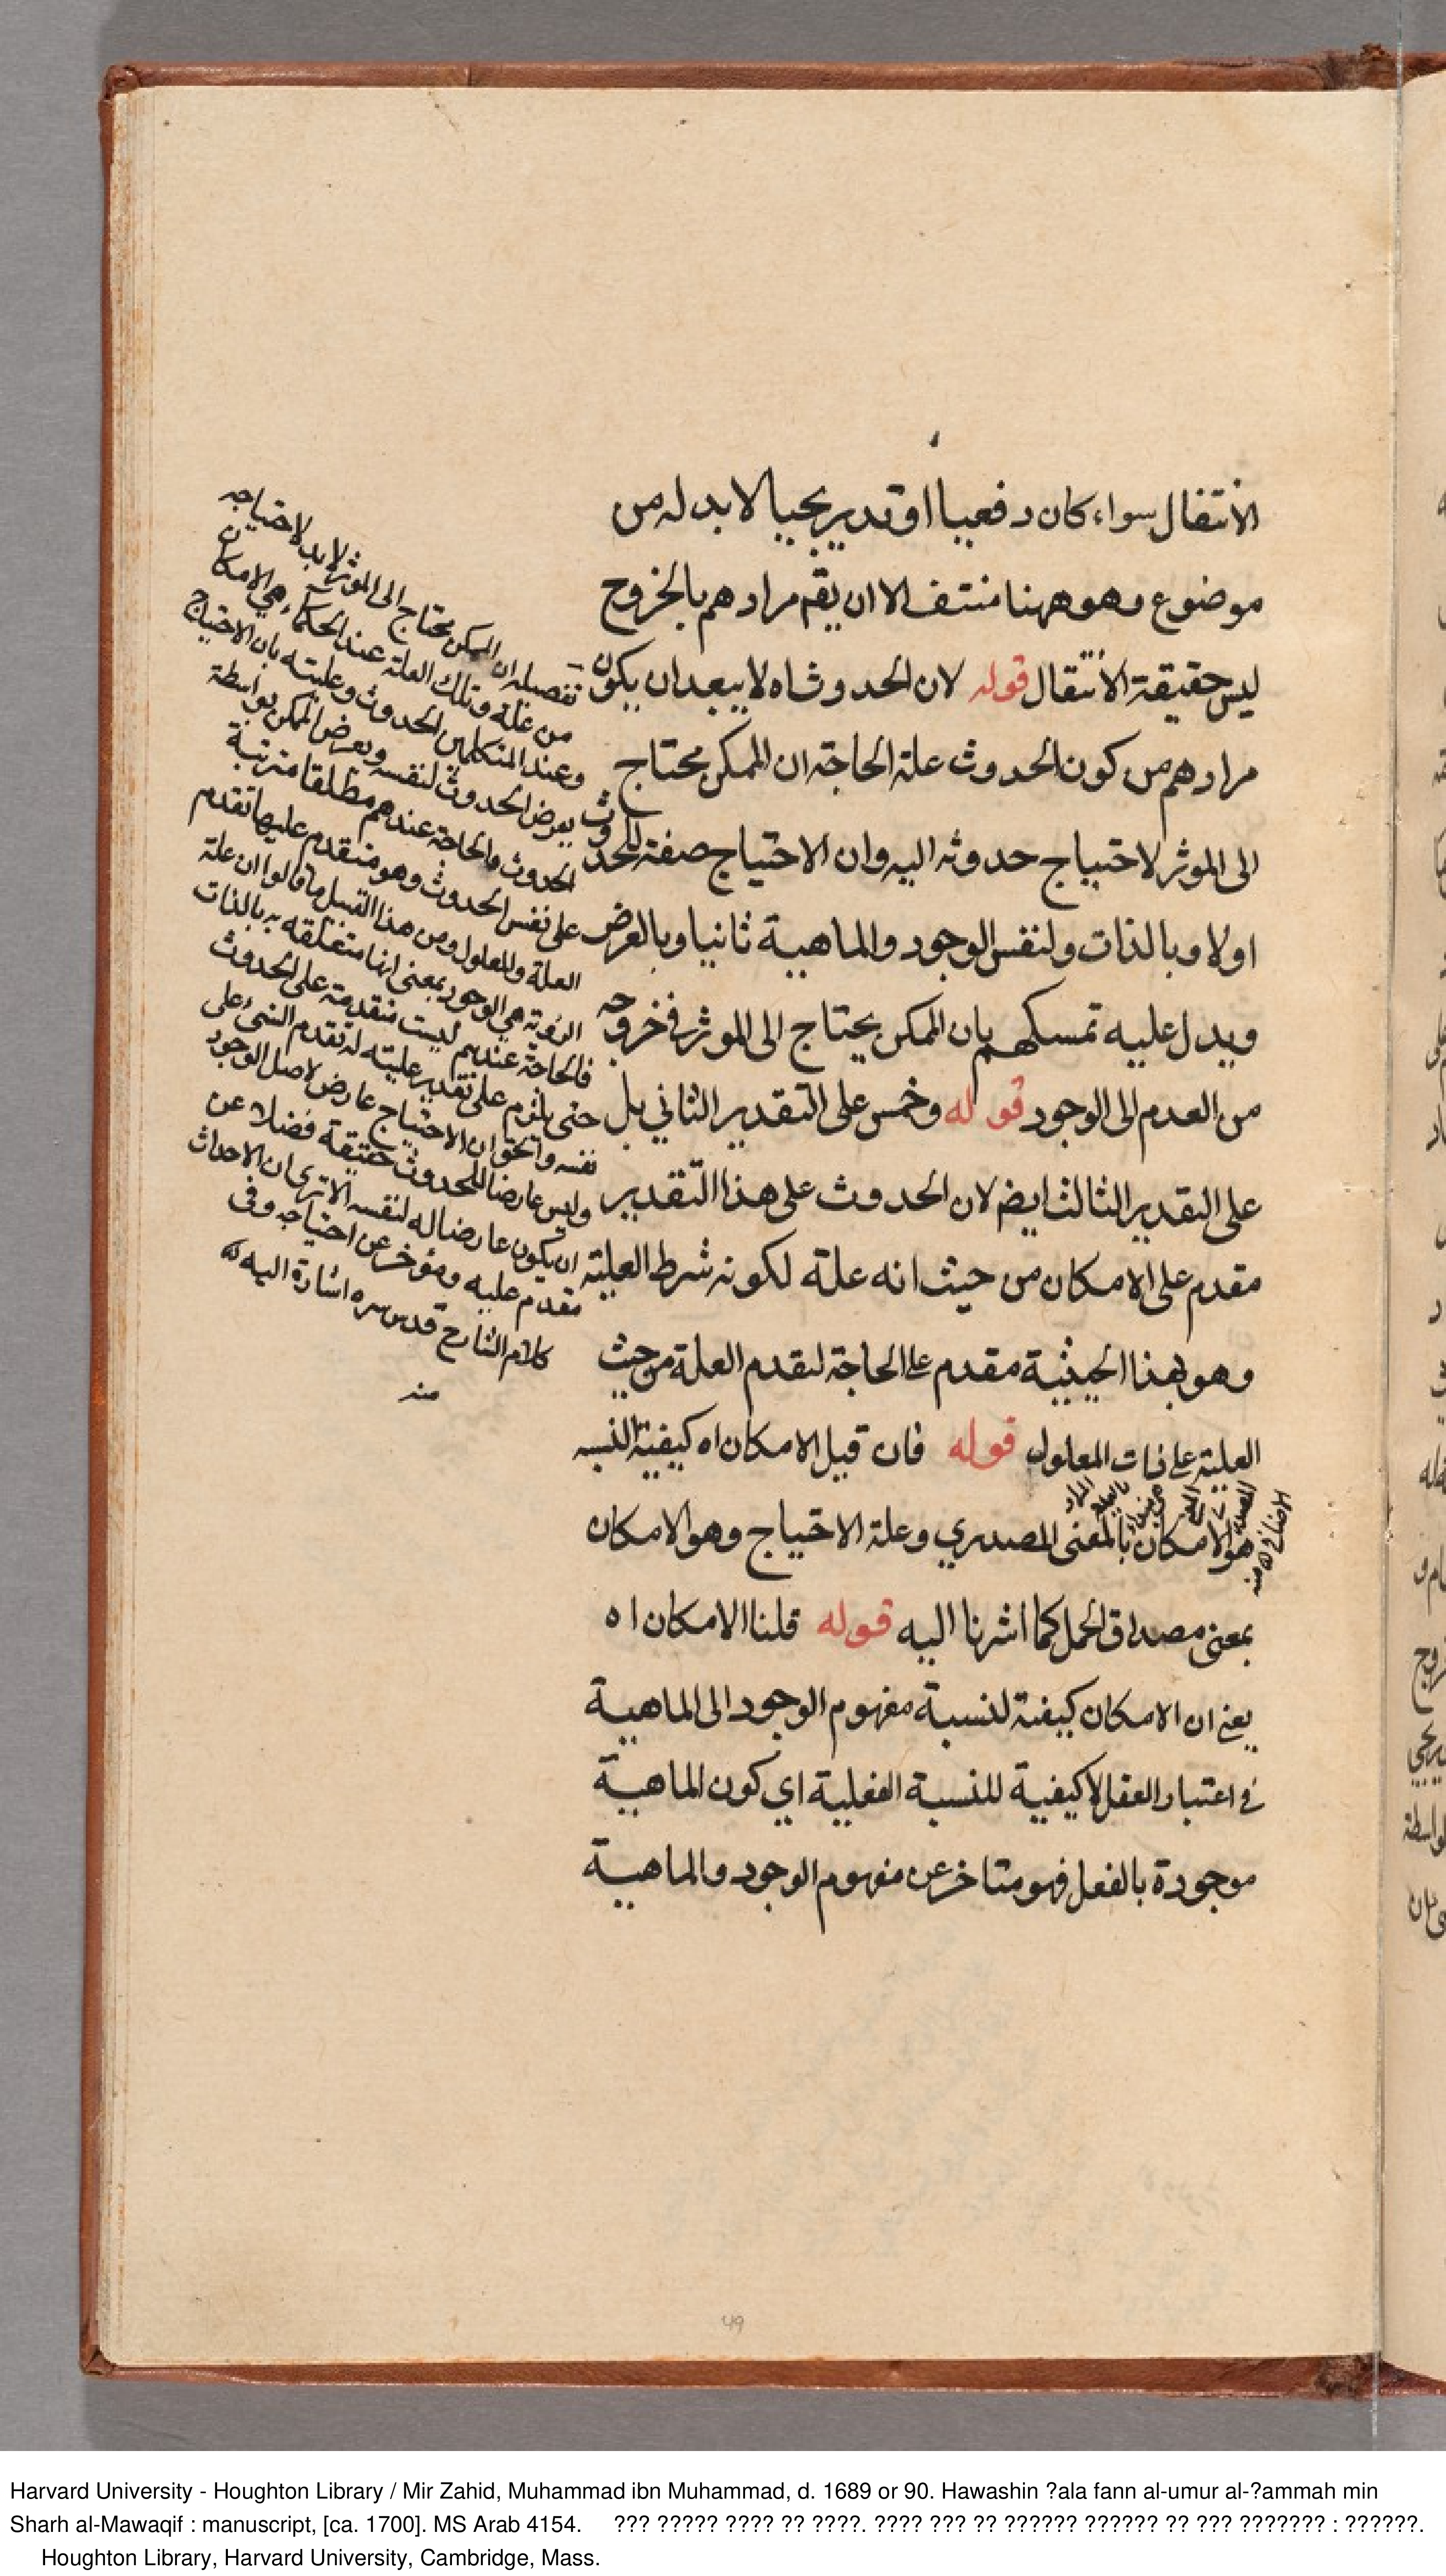 الانتقال سواء كان دفعيا او تدريجيا لا بد له من
موضوع وهو ههنا منتف الا ان يقم مرادهم بالخروج
ليس حقيقة الانتقال قوله لان الحدوث اه لا يبعد ان يكون
مرادهم من كون الحدوث علة الحاجة ان الممكن محتاج
الى الموثر لاحتياج حدوثه اليه وان الاحتياج صفة للحدوث
اولا وبالذات ولنفس الوجود والماهية ثانيا وبالعرض
ويدل عليه تمسكهم بان الممكن يحتاج الى الموثر في خروجه
من العدم الى الوجود قوله وخمس على التقدير الثاني بل
على التقدير الثالث ايضا لان الحدوث على هذا التقدير
مقدم على الامكان من حيث انه علة لكونه شرط العلية
وهو بهذا الحيثية مقدم على الحاجة لتقدم العلة من حيث
العلية على ذات المعلول قوله فان قيل الامكان اه كيفية النسبه
هو الامكان بالمعنى المصدري وعلة الاحتياج وهو الامكان
بمعنى مصداق الحمل كما اشرنا اليه قوله قلنا الامكان اه
يعني ان الامكان كيفية لنسبة مفهوم الوجود الى الماهية
في اعتبار العقل لا كيفية للنسبة الفعلية اي كون الماهية
موجودة بالفعل فهو متاخر عن مفهوم الوجود والماهية
تفصيله ان الممكن محتاج الى الموثر لا بد لاحتياجه
من علة وتلك العلة عند الحكماء هي الامكان
وعند المتكلمين الحدوث وعليته بان الاحتياج
يعرض الحدوث لنفسه ويعرض الممكن بواسطة
الحدوث والحاجة عندهم مطلقا مترتبة
على نفس الحدوث وهو متقدم عليها تقدم
العلة والمعلول ومن هذا القبيل ما قالوا ان علة
الرؤية هي الوجود بمعنى انها متعلقه به بالذات
فالحاجة عندهم ليست متقدمة على الحدوث
حتى يلزم على تقدير عليته له تقدم الشئ على
نفسه والحق ان الاحتياج عارض لاصل الوجود
وليس عارضا للحدوث حقيقة فضلا عن
ان يكون عارضا له لنفسه الا ترى ان الاحداث
مقدم عليه ومؤخر عن احتياجه وفي
كلام الشارح قدس سره اشارة اليه
منه
49
Harvard University - Houghton Library / Mir Zahid, Muhammad ibn Muhammad, d. 1689 or 90. Hawashin ?ala fann al-umur al-?ammah min
Sharh al-Mawaqif : manuscript, [ca. 1700]. MS Arab 4154. ??? ????? ???? ?? ????. ???? ??? ?? ?????? ?????? ?? ??? ??????? : ??????.
Houghton Library, Harvard University, Cambridge, Mass.